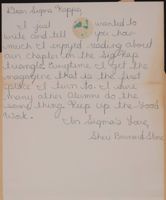 Dear Sigma Kappa,
I just wanted to
write and tell you how
much I enjoyed reading about
our chapter on the Sig Kap
triangle. Everytime I get the
magazine that is the first
place I turn to. I'm sure
many other Alumni do the
same thing. Keep up the Good
Work.
In Sigma's Love,
Sheri